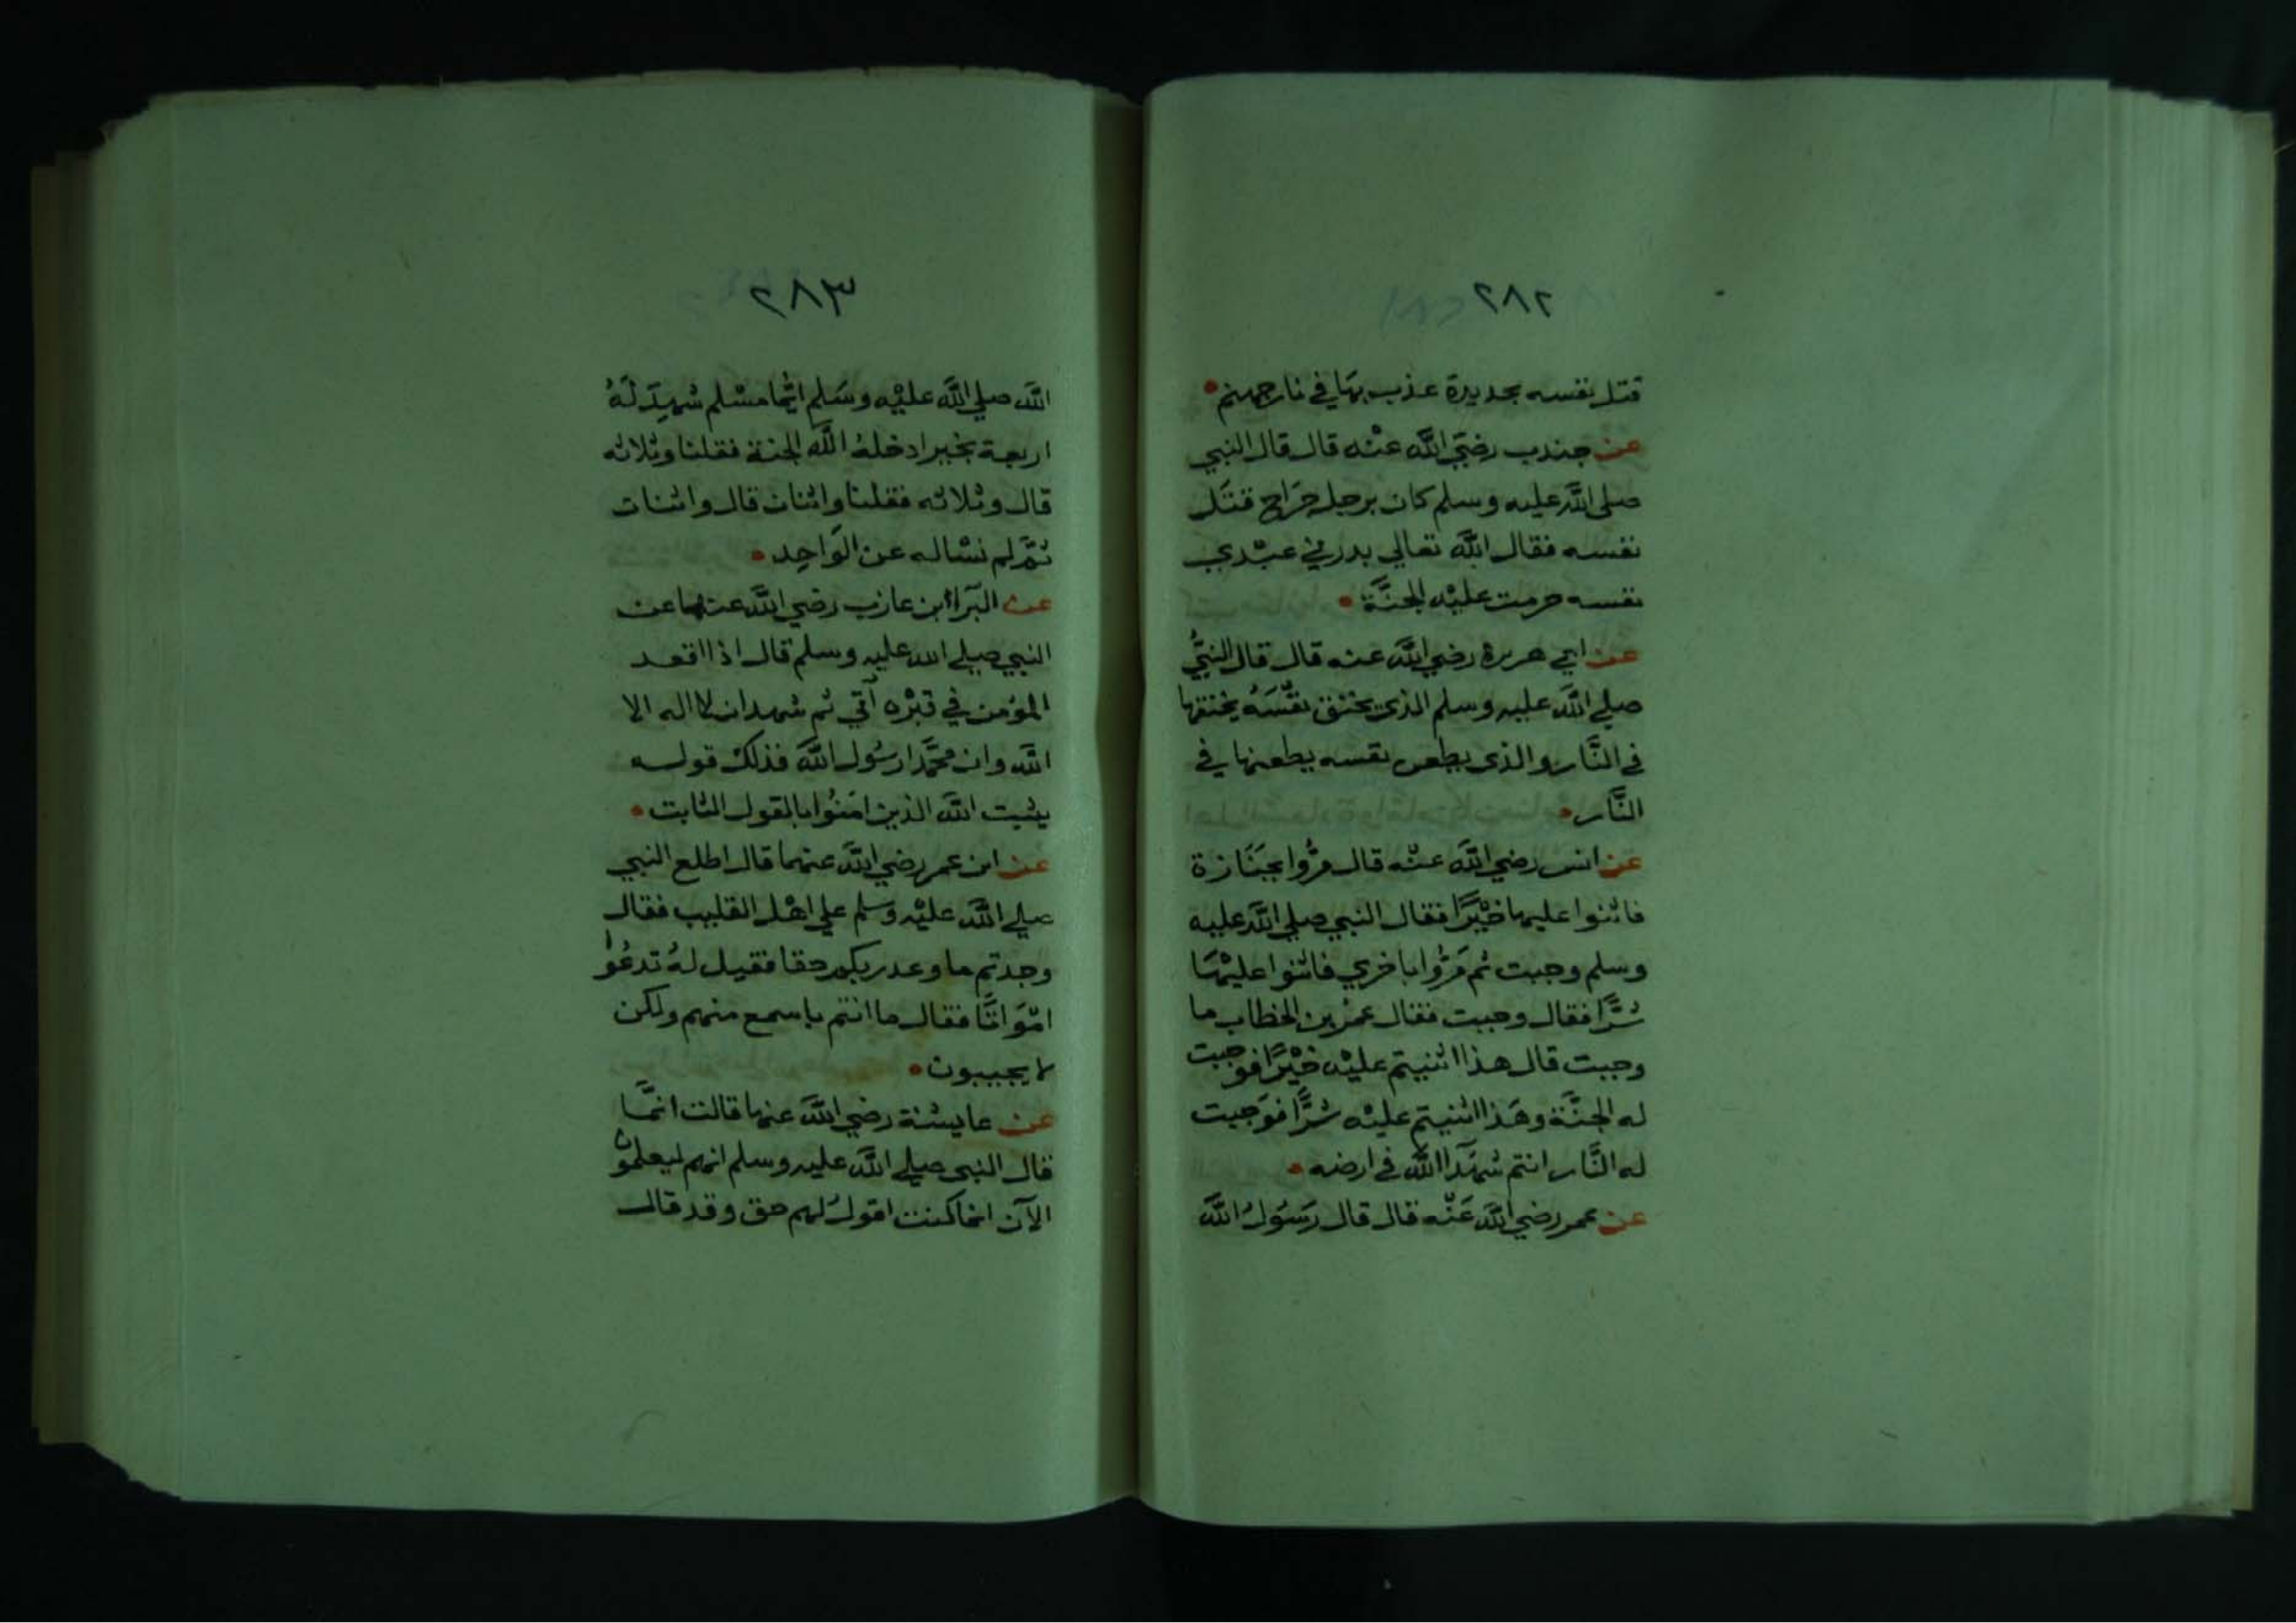 ٢٨٢
قتل نفسه بحديدة عذب بهَا في نار جهنم
عن جندب رضيَ اللَّه عنْه قال قال النبي
صلى اللَّه عليه وسلم كان برجل جرَاح قتَل
نفسه فقال اللَّه تعالي بدرني عبْدي
نفسه حرمت عليْه الجنَّة
عن ابي هريرة رضي اللَّه عنه قال قال النبيُّ
صلي اللَّه عليه وسلم الذي يخنق نفْسَهُ يخنقها
في النَّار والذي يطعن نفسه يطعنها في
النَّار
عن انس رضي اللَّه عنْه قال مرُّوا بجنَازة
فاثنوا عليها خيْرًا فقال النبي صلي اللَّه عليه
وسلم وجبت ثم مَرُّوا باخري فاثنوا عليْهَا
شرًّا فقال وجبت فقال عمرْ بن الخطاب ما
وجبت قال هذا اثنيتم عليْه خيْرًا فوجبت
له الجنَّة وهَذا اثنيتم عليْه شرًّا فوَجبت
له النَّار انتم شهَدآ اللَّه في ارضه
عن عمر رضي اللَّه عَنْه قال قال رَسُولُ اللَّه
٢٨٣
اللَّه صلي اللَّه عليْه وسَلم ايُّما مسْلم شهِدَ لَهُ
اربعة بخير ادخلهُ اللَّه الجنة فقلنا وثلاثه
قال وثلاثه فقلنا واثنان قال واثنان
ثمَّ لم نسْاله عن الوَاحِد
عن البَرآ ابن عازب رضي اللَّه عنهما عن
النبي صلي الله عليه وسلم قال اذا اقعد
المؤمن في قبْره آتي ثم شهد ان لا اله الا
اللَّه وان محمَّدا رسُول اللَّه فذلكْ قوله
يثبت اللَّه الذين امَنُوا بالقول الثابت
عن ابن عمر رضي اللَّه عنهما قال اطلع النبي
صلي اللَّه عليْه وسلم علي اهْل القليب فقال
وجدتم ما وعد ربكم حقا فقيل لهُ تدعُوا
امْوَاتًا فقال ما انتم باسمع منهم ولكن
لا يجيبون
عن عايشة رضي اللَّه عنها قالت انمَّا
قال النبي صلي اللَّه عليه وسلم انهم ليعلمون
الآن انما كنت اقولُ لهم حق وقد قال